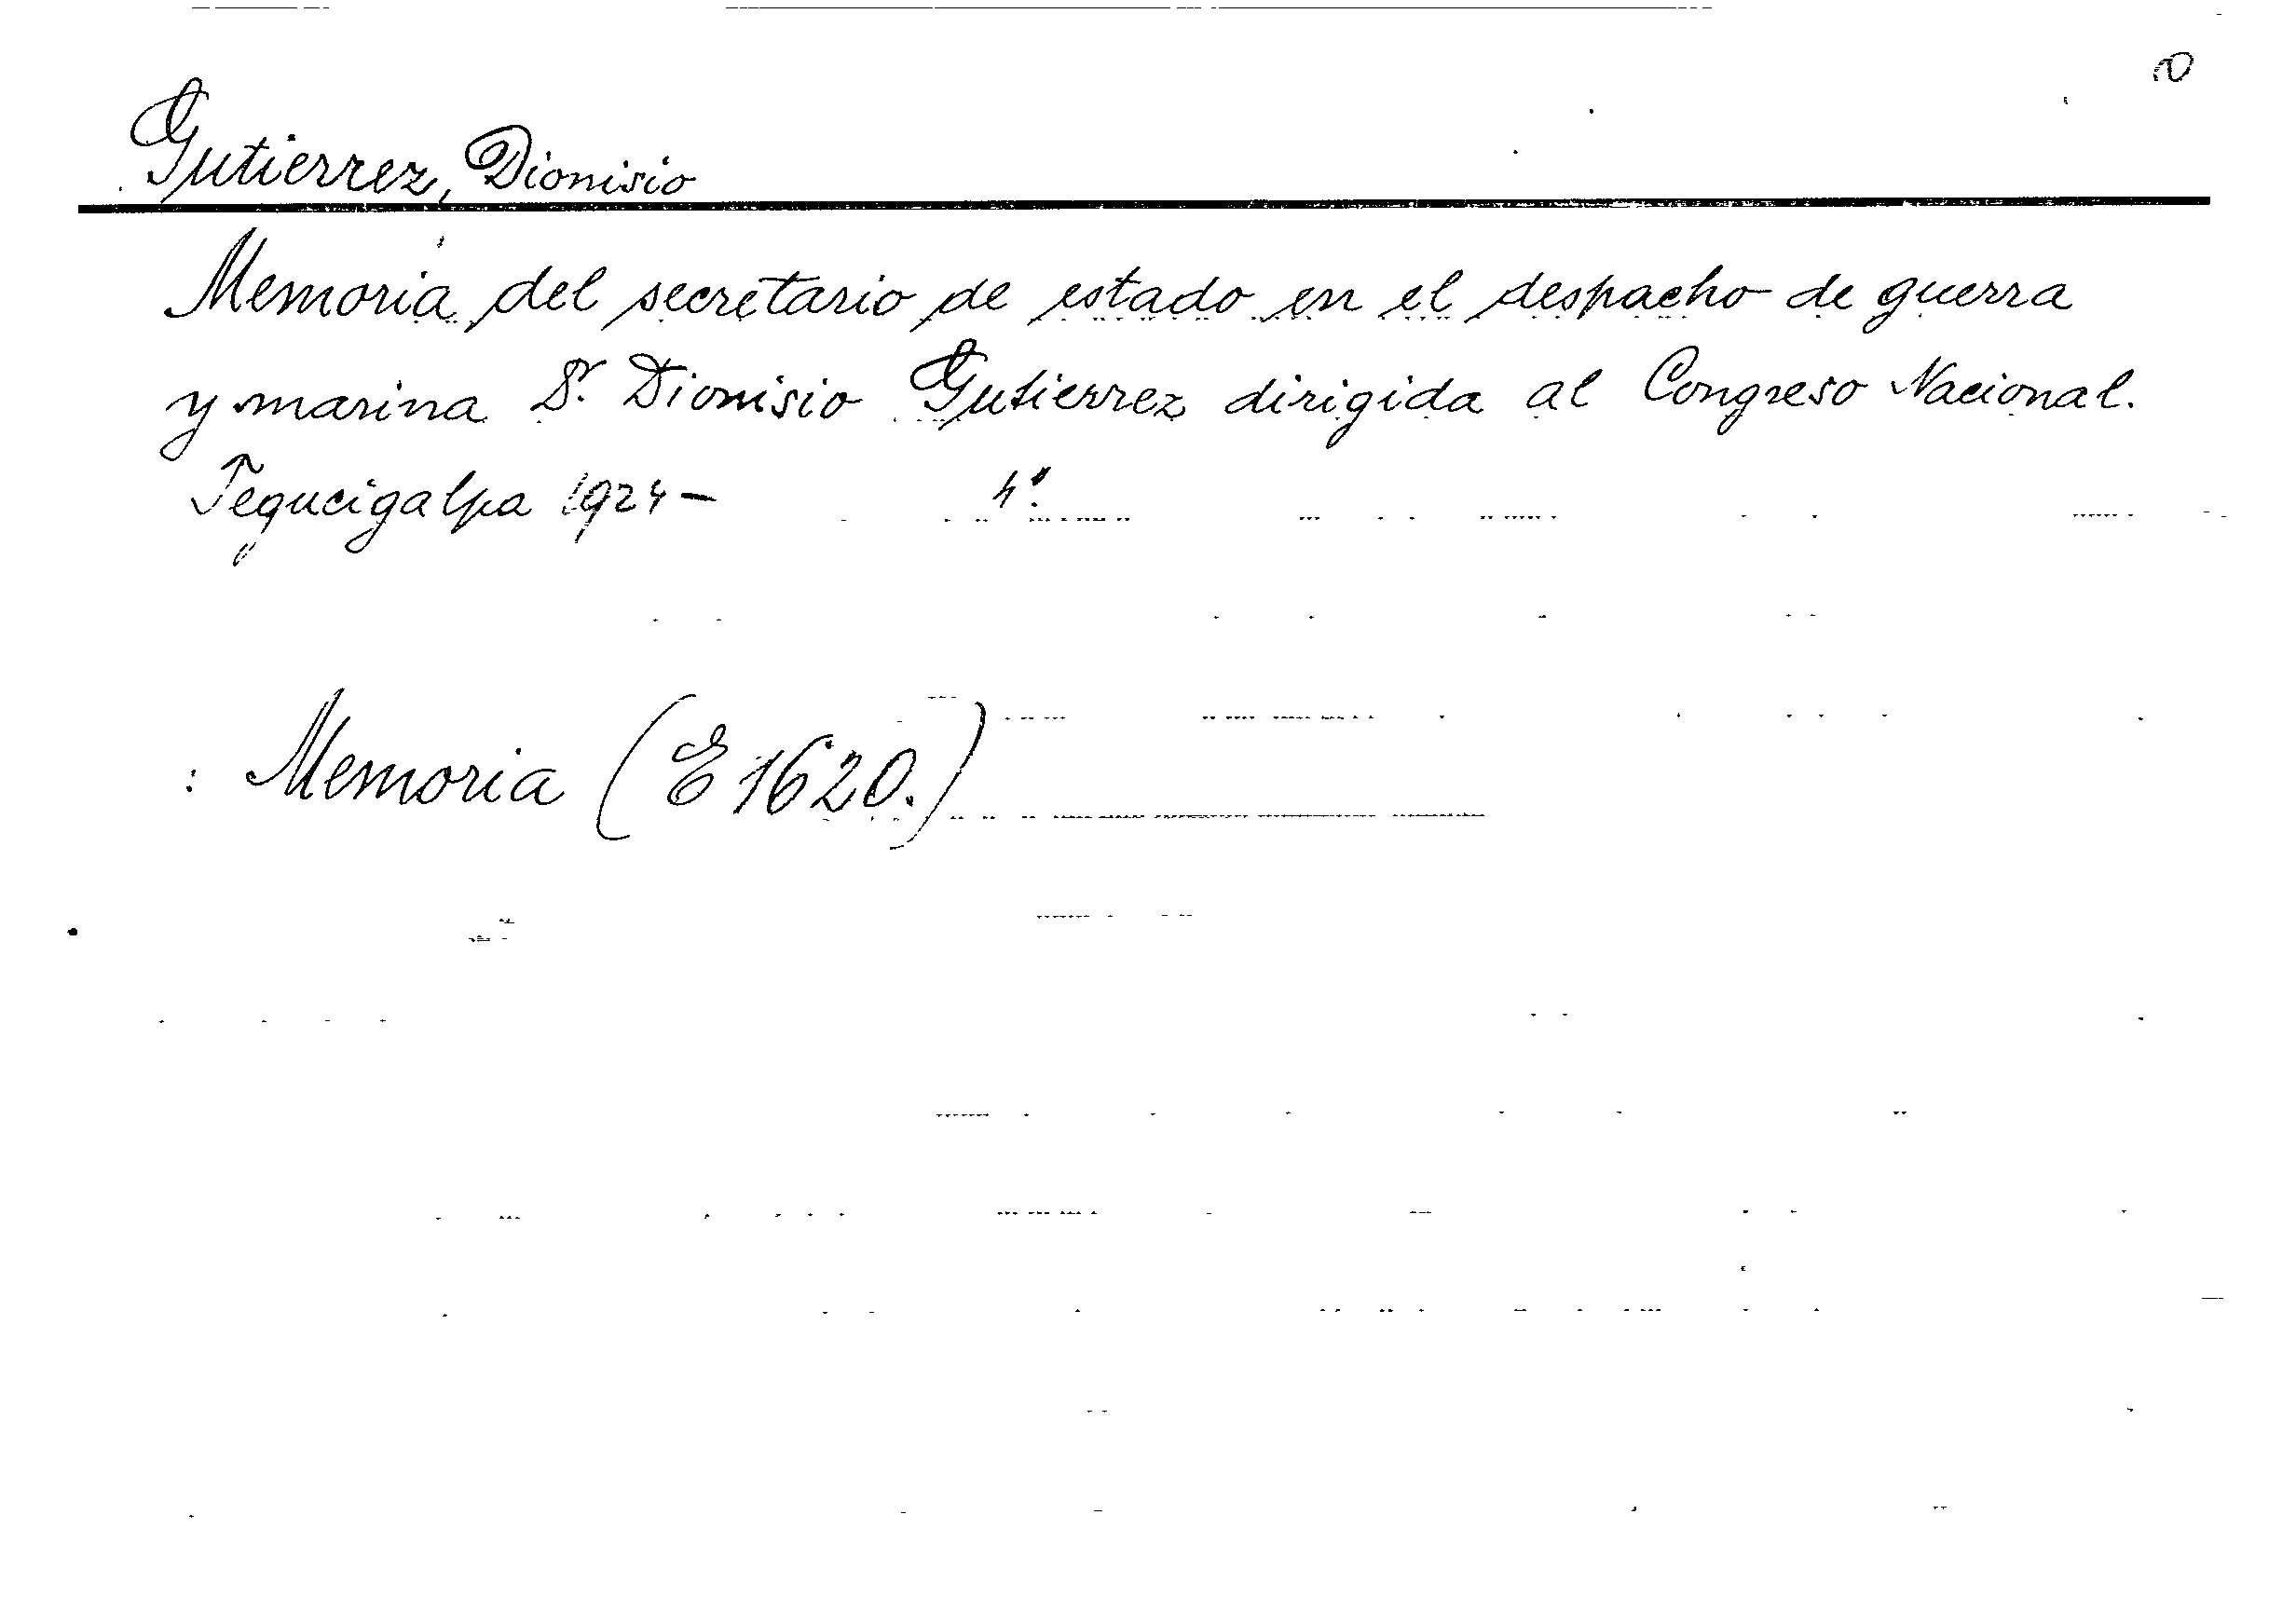 Gutierrez, Dionisio
Memoria del secretario de estado en el despacho de guerra
y marina Sr. Dionisio Gutierrez dirigida al Congreso Nacional.
Tegucigalpa 1924 — 4º.
: Memoria (E 1620.)